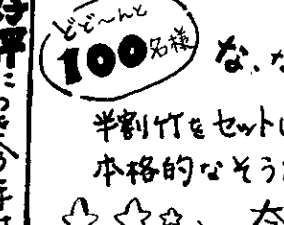 好評につき今年は
どど〜んと
100名様
な、な
半割竹をセットし
本格的なそう
☆☆☆、